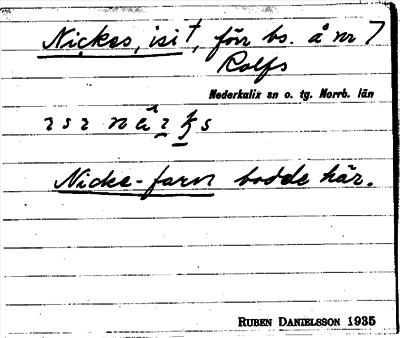 Nickes, isi †, förr bs. å nr 7
Rolfs
Nederkalix sn o. tg. Norrb. län
Nicke-farn bodde här.
RUBEN DANIELSSON 1935